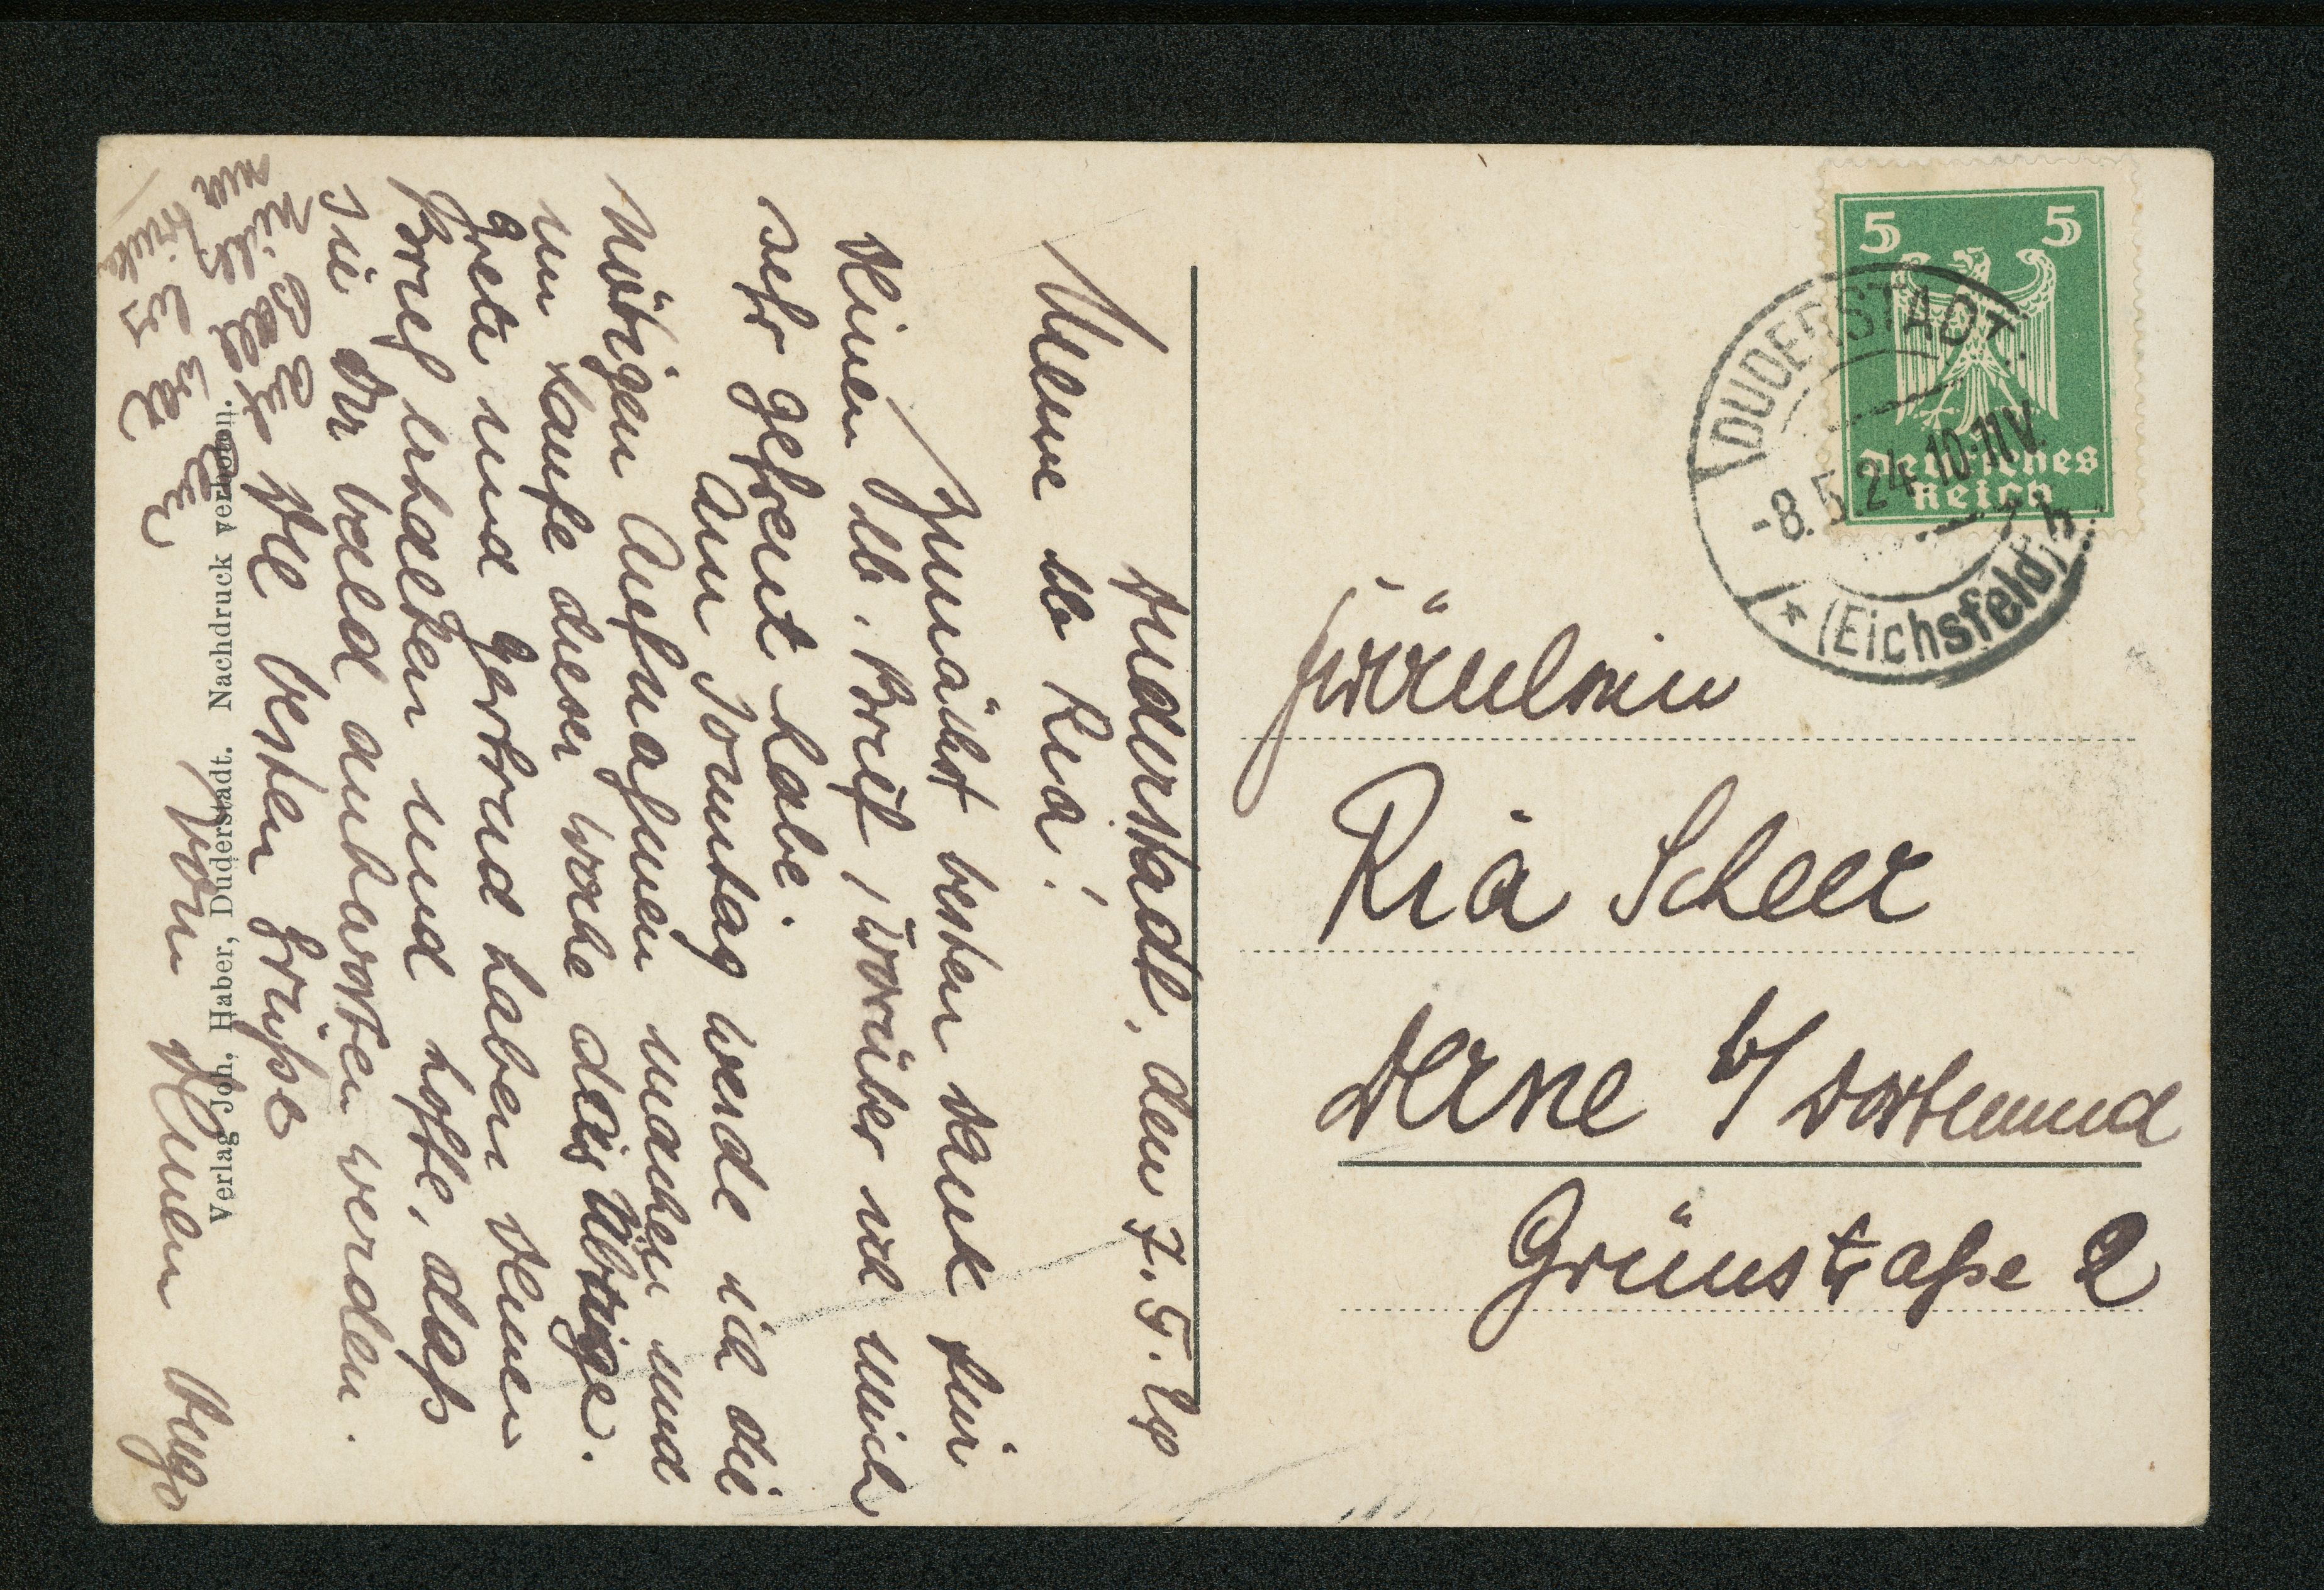 Duderstadt, den 7. 5.
Meine lb Ria!
Zunächst besten Dank für
Deinen lb. Brief, worüber ich mich
sehr gefreut habe.
Am Sonntag werde ich die
nötigen Aufnahmen machen und
im Laufe dieser Woche das Übrige.
Grete und Gertrud haben Deinen
Brief erhalten und hoffe, dass
sie Dir bald antworten werden.
Die besten Grüsse
von Deinem Hugo
Verlag Joh. Haber, Duderstadt. Nachdruck verboten.
5 5
Deutsches
Reich
DUDERSTADT
-8.5.24 10-11V.
* (Eichsfeld)
Fräulein
Ria Scheer
Derne b/ Dortmund
Grünstraße 2